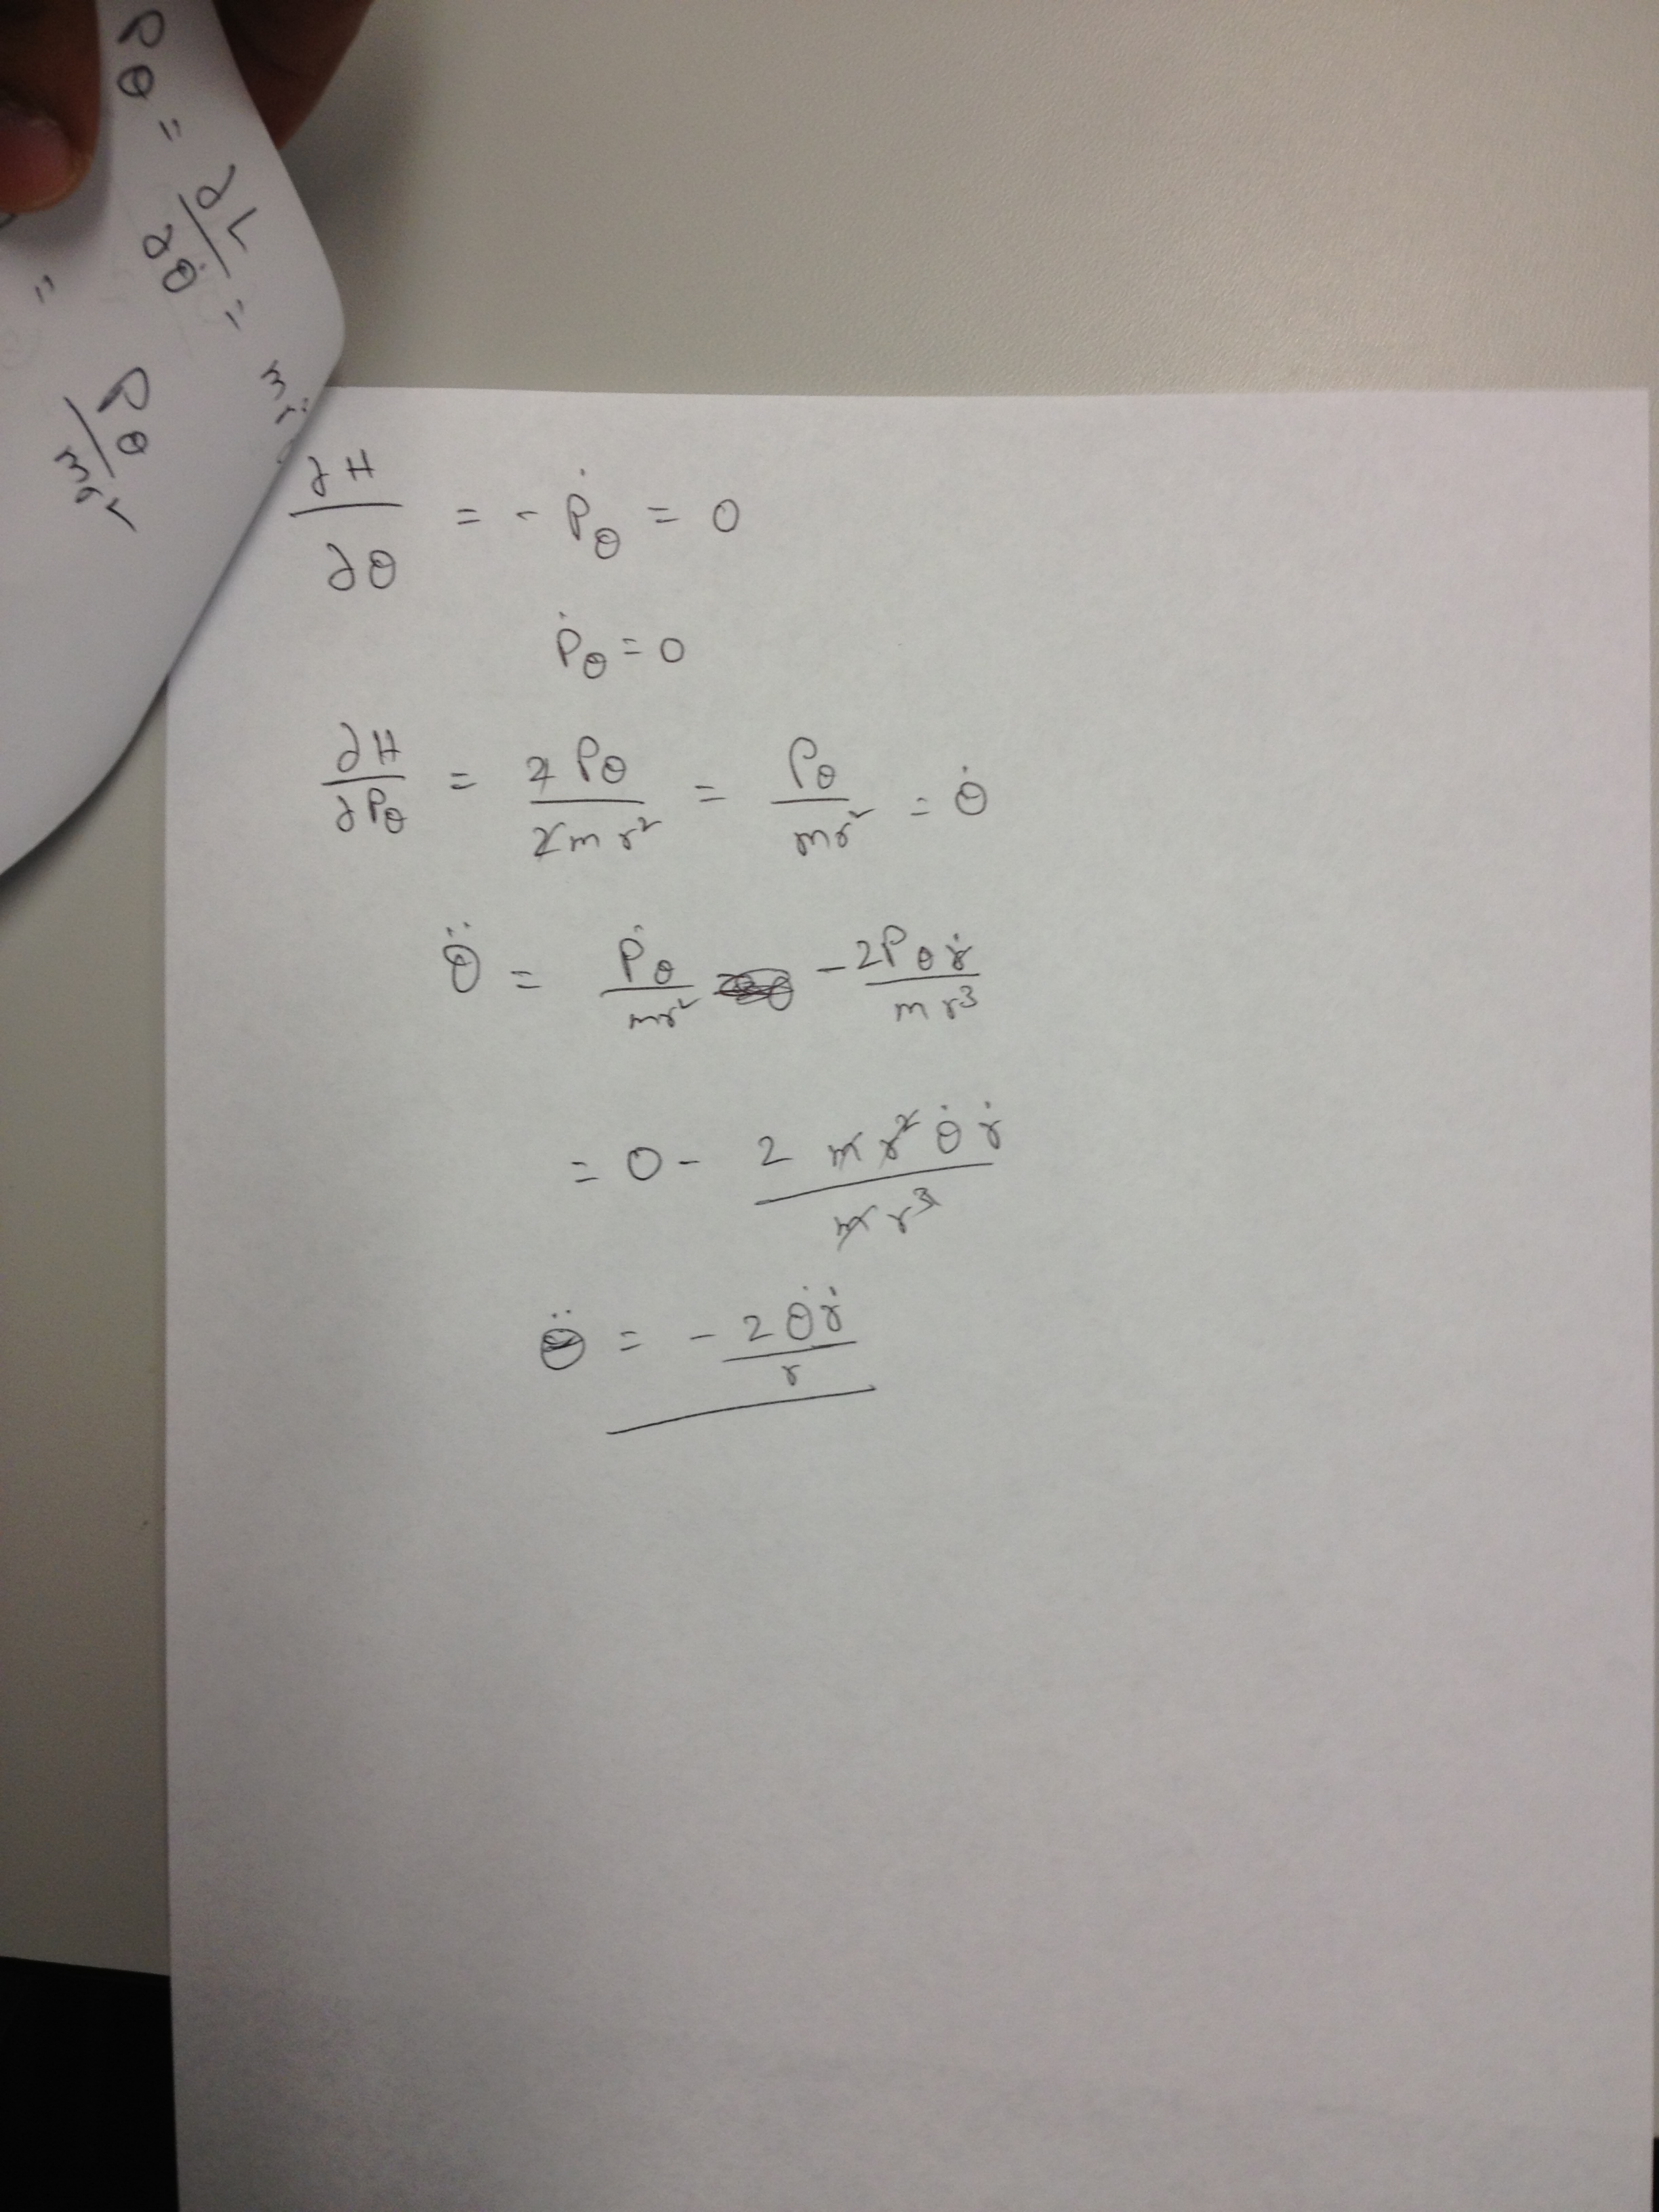 Pθ = ∂L/∂θ̇ = mr
= Pθ/mr²
∂H/∂θ = - Ṗθ = 0
Ṗθ = 0
∂H/∂Pθ = 2Pθ/2mr² = Pθ/mr² = θ̇
θ̈ = Ṗθ/mr² - 2Pθṙ/mr³
= 0 - 2mr²θ̇ṙ/mr³
θ̈ = - 2θ̇ṙ/r